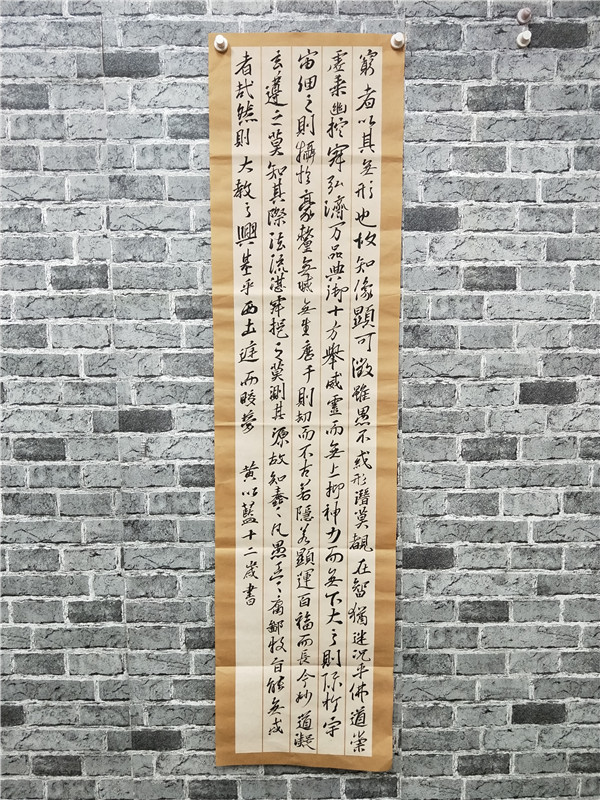 窮者以其無形也故知像顯可徵雖愚不或形潛莫覩在智猶迷況乎佛道崇
虛乘幽控寂弘濟万品典御十方舉威靈而無上抑神力而無下大之則弥於宇
宙細之則攝於豪釐無滅無生歷千則劫而不古若隱若顯運百福而長今妙道凝
玄遵之莫知其際法流湛寂挹之莫測其源故知蠢々凡愚區々庸鄙投旨能無或
者哉然則大教之興基乎西土庭而皎夢 黃以藍十二歲書